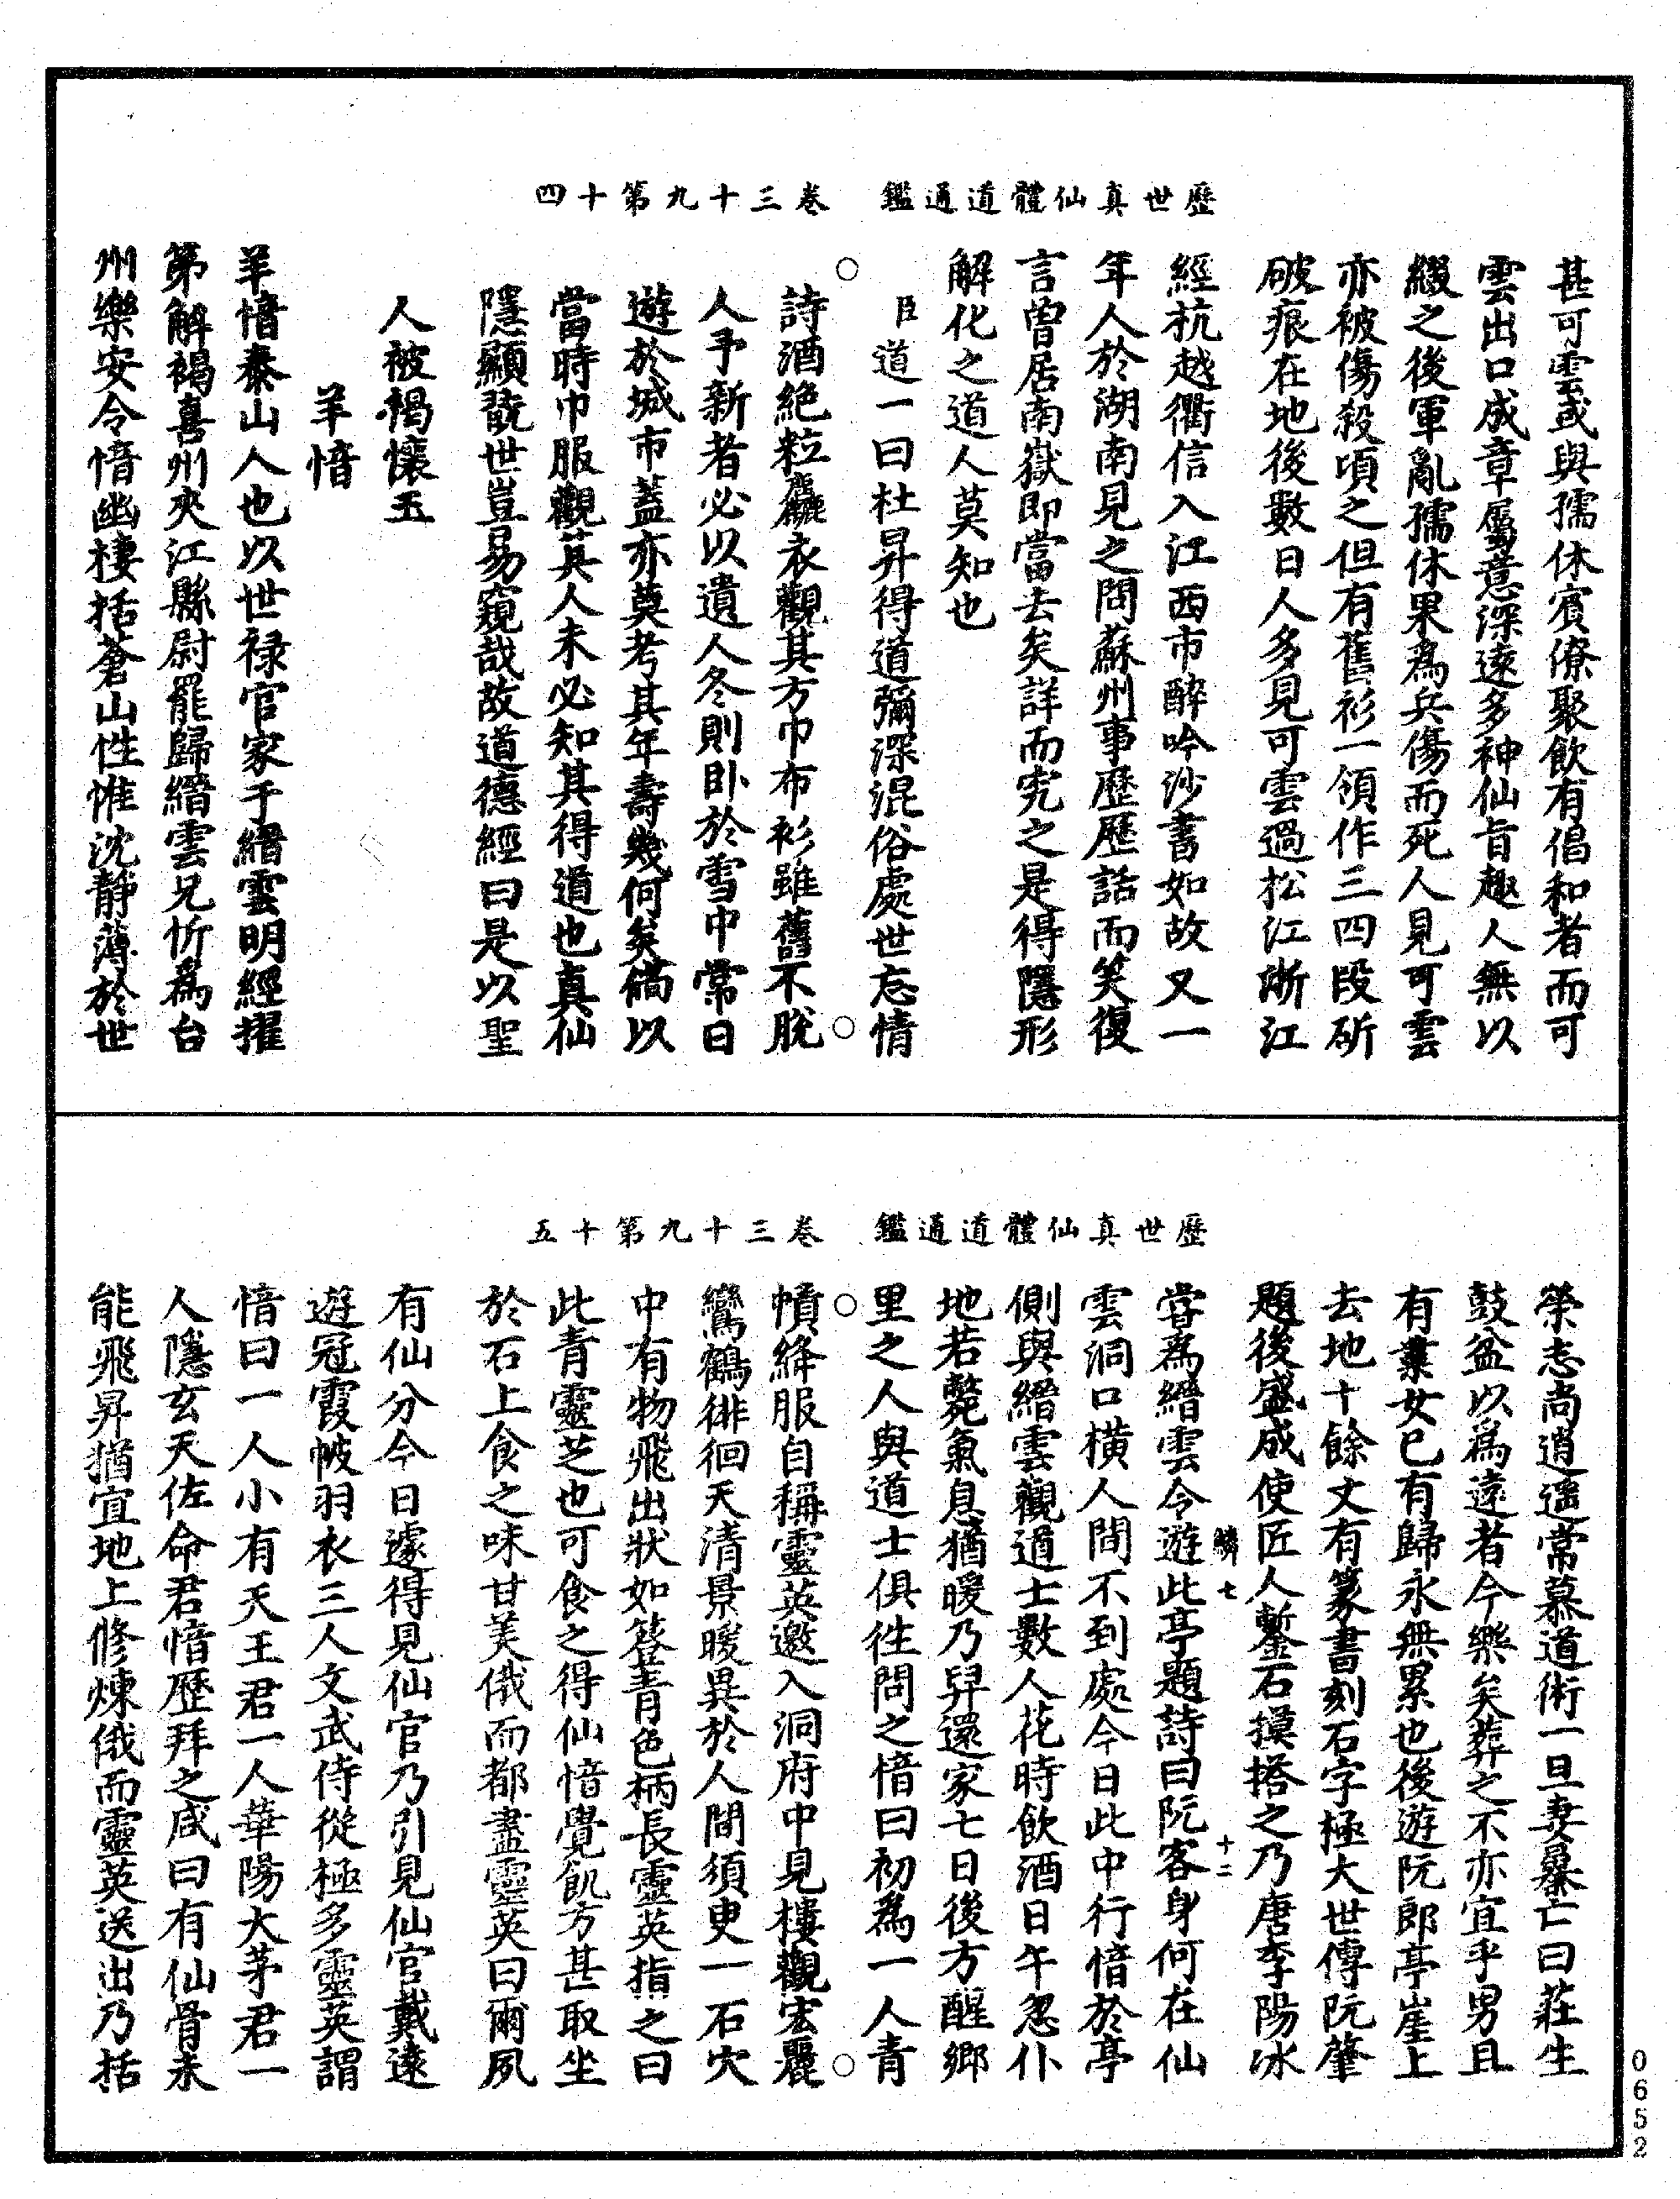 歷世真仙體道通鑑　卷三十九第十四
甚可雲或與孺休賓僚聚飲有倡和者而可
雲出口成章屬意深遠多神仙旨趣人無以
綴之後軍亂孺休果爲兵傷而死人見可雲
亦被傷殺頃之但有舊衫一領作三四段斫
破痕在地後數日人多見可雲過松江浙江
經杭越衢信入江西市醉吟沙書如故又一
年人於湖南見之問蘇州事歷歷話而笑復
言曾居南嶽即當去矣詳而究之是得隱形
解化之道人莫知也
臣道一曰杜昇得道彌深混俗處世忘情
詩酒絶粒麤衣觀其方巾布衫雖舊不脫
人予新者必以遺人冬則卧於雪中常日
遊於城市蓋亦莫考其年壽幾何矣倘以
當時巾服觀其人未必知其得道也真仙
隱顯翫世豈易窺哉故道德經曰是以聖
人被褐懷玉
羊愔
羊愔泰山人也以世禄官家于縉雲明經擢
第解褐喜州夾江縣尉罷歸縉雲兄忻爲台
州樂安令愔幽棲括蒼山性惟沈靜薄於世
歷世真仙體道通鑑　卷三十九第十五
榮志尚逍遥常慕道術一旦妻暴亡曰莊生
鼓盆以爲達者今樂矣葬之不亦宜乎男且
有業女已有歸永無累也後遊阮郎亭崖上
去地十餘丈有篆書刻石字極大世傳阮肇
題後盛成使匠人鏨石摸搭之乃唐李陽冰
鱗七　十二
嘗爲縉雲令遊此亭題詩曰阮客身何在仙
雲洞口横人間不到處今日此中行愔於亭
側與縉雲觀道士數人花時飲酒日午忽仆
地若斃氣息猶暖乃舁還家七日後方醒鄉
里之人與道士俱徃問之愔曰初爲一人青
幘絳服自稱靈英邀入洞府中見樓觀宏麗
鸞鶴徘徊天清景暖異於人間須臾一石穴
中有物飛出狀如簦青色柄長靈英指之曰
此青靈芝也可食之得仙愔覺飢方甚取坐
於石上食之味甘美俄而都盡靈英曰爾夙
有仙分今日遽得見仙官乃引見仙官戴遠
遊冠霞帔羽衣三人文武侍從極多靈英謂
愔曰一人小有天王君一人華陽大茅君一
人隱玄天佐命君愔歷拜之咸曰有仙骨未
能飛昇猶宜地上修煉俄而靈英送出乃括
0652